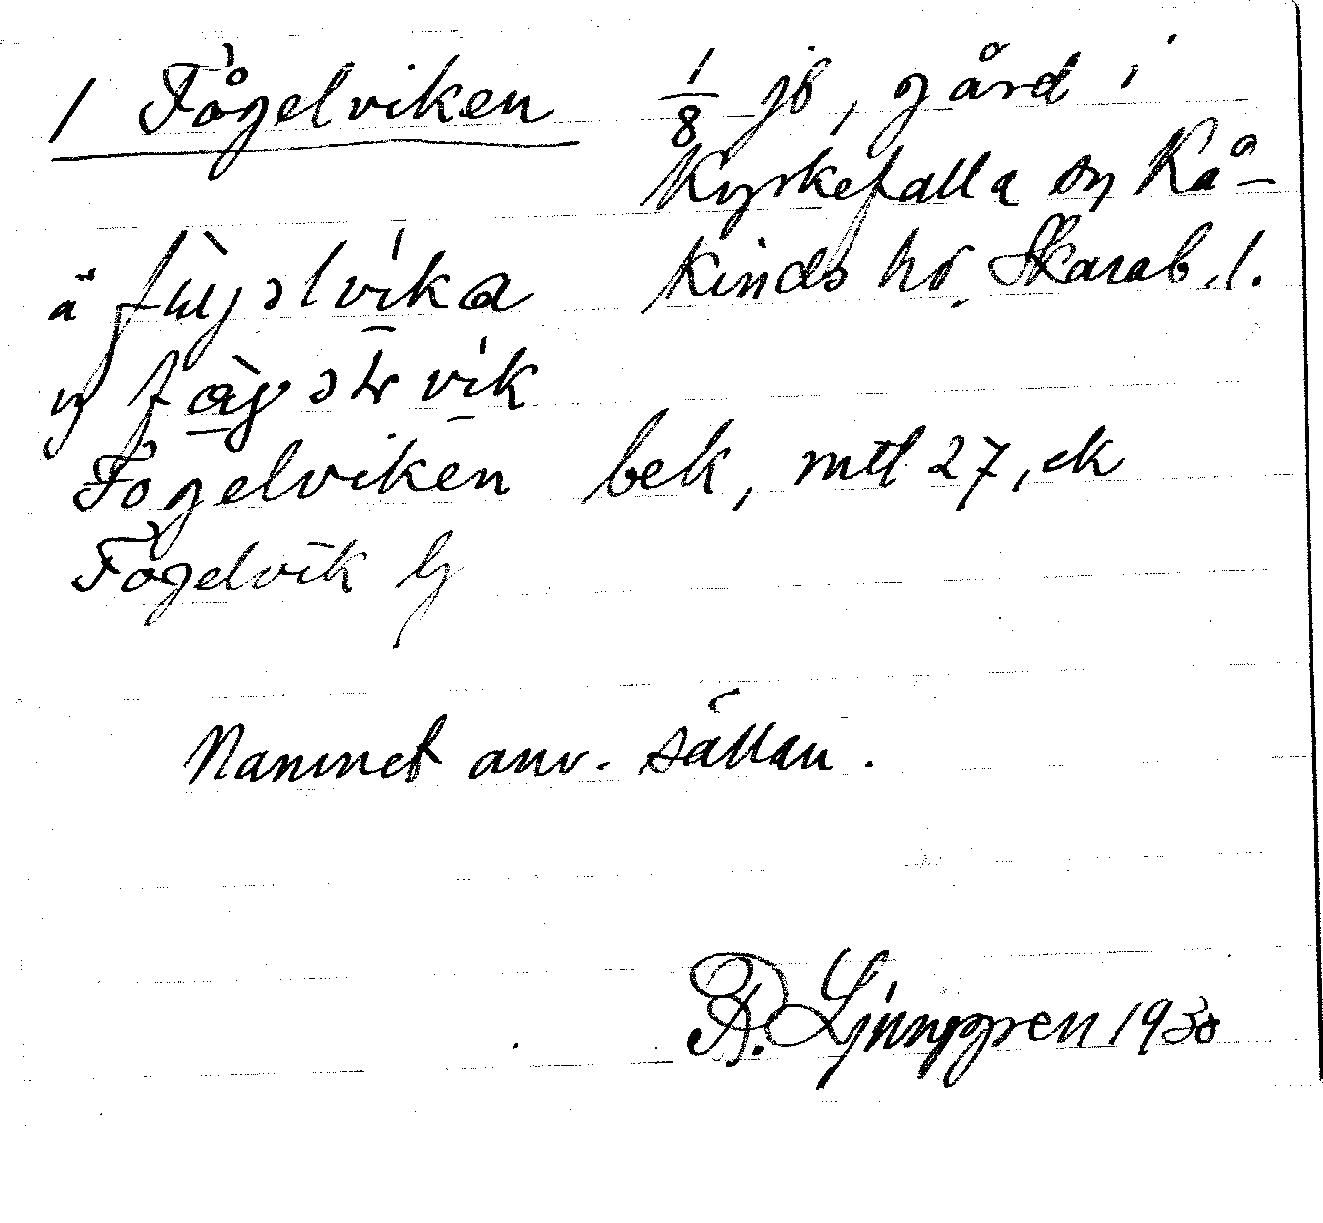 1 Fågelviken 1/8 jb, gård i
Kyrkefalla sn Kå-
kinds hd. Skarab. l.
ä fùgəlvíka
y
Fogelviken bek, mtl 27, ek
Fågelvik Lj
Namnet anv. sällan.
R. Ljunggren 1930